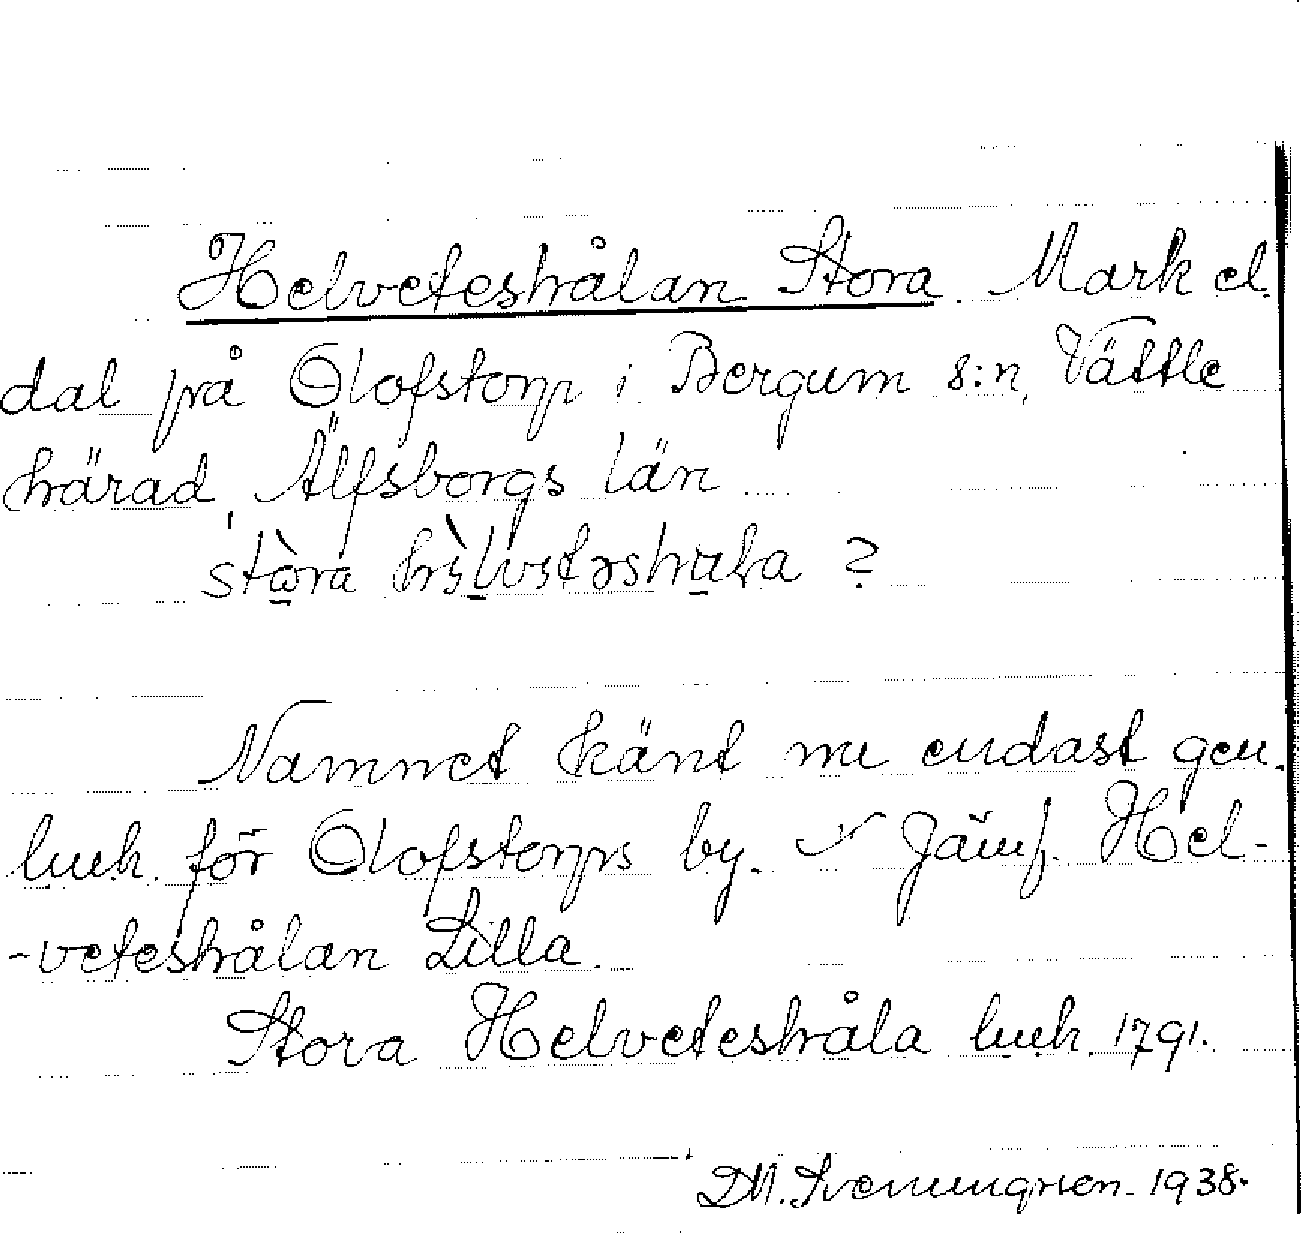 Helveteshålan Stora. Mark el.
dal på Olofstorp i Bergum s:n, Vättle
härad, Älfsborgs län
stora ?
Namnet känt nu endast gen.
luuh för Olofstorps by. Jämf. Hel-
-veteshålan Lilla.
Stora Helveteshåla luuh 1791.
D.M. 1938.